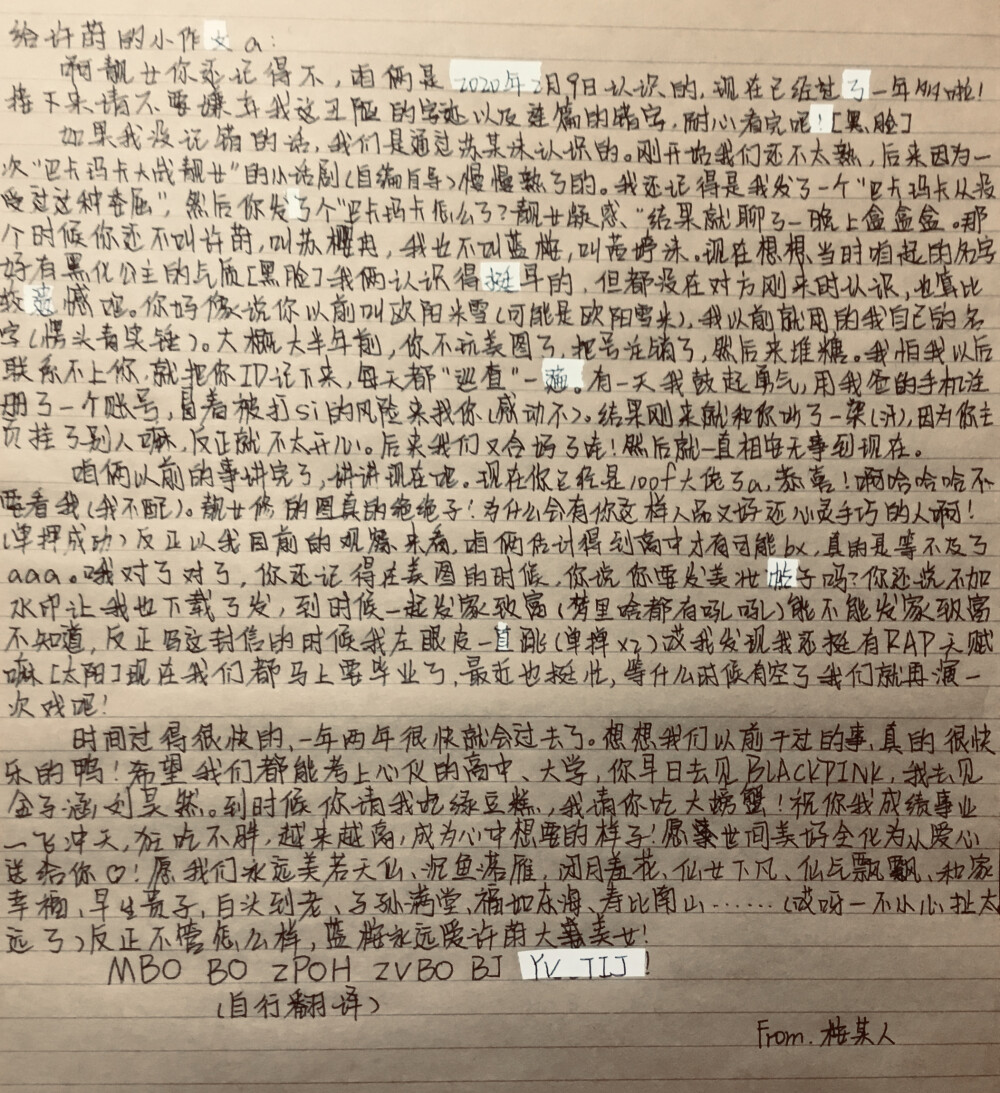 给许蔚的小作文a:
啊靓女你还记得不,咱俩是2020年2月9日认识的,现在已经过了一年多啦!
接下来请不要嫌弃我这丑陋的字迹以及连篇的错字,耐心看完吧![黑脸]
如果我没记错的话,我们是通过苏某沫认识的。刚开始我们还不太熟,后来因为一
次“巴卡玛卡大战靓女”的小话剧(自编自导)慢慢熟了的。我还记得是我发了一个“巴卡玛卡从没
受过这种委屈”,然后你发了个“巴卡玛卡怎么了?靓女疑惑、”结果就聊了一晚上盒盒盒。那
个时候你还不叫许蔚,叫苏樱冉,我也不叫蓝梅,叫苦婷沫。现在想想当时咱起的名字
好有黑化公主的气质[黑脸]我俩认识得挺早的,但都没在对方刚来时认识,也算比
较遗憾啦。你好像说你以前叫欧阳米雪(可能是欧阳雪米),我以前就用的我自己的名
字(愣头青实锤)。大概大半年前,你不玩美图了,把号注销了,然后来堆糖。我怕我以后
联系不上你,就把你ID记下来,每天都“巡查”一遍。有一天我鼓起勇气,用我爸的手机注
册了一个账号,冒着被打si的风险来找你(感动不)。结果刚来就和你吵了一架(汗),因为你主
页挂了别人嘛,反正就不太开心。后来我们又合好了哇!然后就一直相安无事到现在。
咱俩以前的事讲完了,讲讲现在吧。现在你已经是100f大佬了a,恭喜!啊哈哈哈不
要看我(我不配)。靓女修的图真的绝绝子!为什么会有你这样人品又好还心灵手巧的人啊!
(单押成功)反正以我目前的观察来看,咱俩估计得到高中才有可能bx,真的是等不及了
aaa。哦对了对了,你还记得在美图的时候,你说你要发美妆帖子吗?你还说不加
水印让我也下载了发,到时候一起发家致富(梦里啥都有吼吼)能不能发家致富
不知道,反正写这封信的时候我左眼皮一直跳(单押x2)哎我发现我还挺有RAP天赋
嘛[太阳]现在我们都马上要毕业了,最近也挺忙,等什么时候有空了我们就再演一
次戏吧!
时间过得很快的,一年两年很快就会过去了。想想我们以前干过的事,真的很快
乐的鸭!希望我们都能考上心仪的高中、大学,你早日去见BLACKPINK,我去见
金子涵,刘昊然。到时候你请我吃绿豆糕,我请你吃大螃蟹!祝你我成绩事业
一飞冲天,狂吃不胖,越来越高,成为心中想要的样子!愿世间美好全化为从爱心
送给你♡!愿我们永远美若天仙、沉鱼落雁、闭月羞花、仙女下凡、仙气飘飘、和家
幸福、早生贵子、白头到老、子孙满堂、福如东海、寿比南山……(哎呀一不小心扯太
远了)反正不管怎么样,蓝梅永远爱许蔚大美女!
MBO BO ZPOH ZVBO BJ YV JIJ!
(自行翻译)
From.梅某人